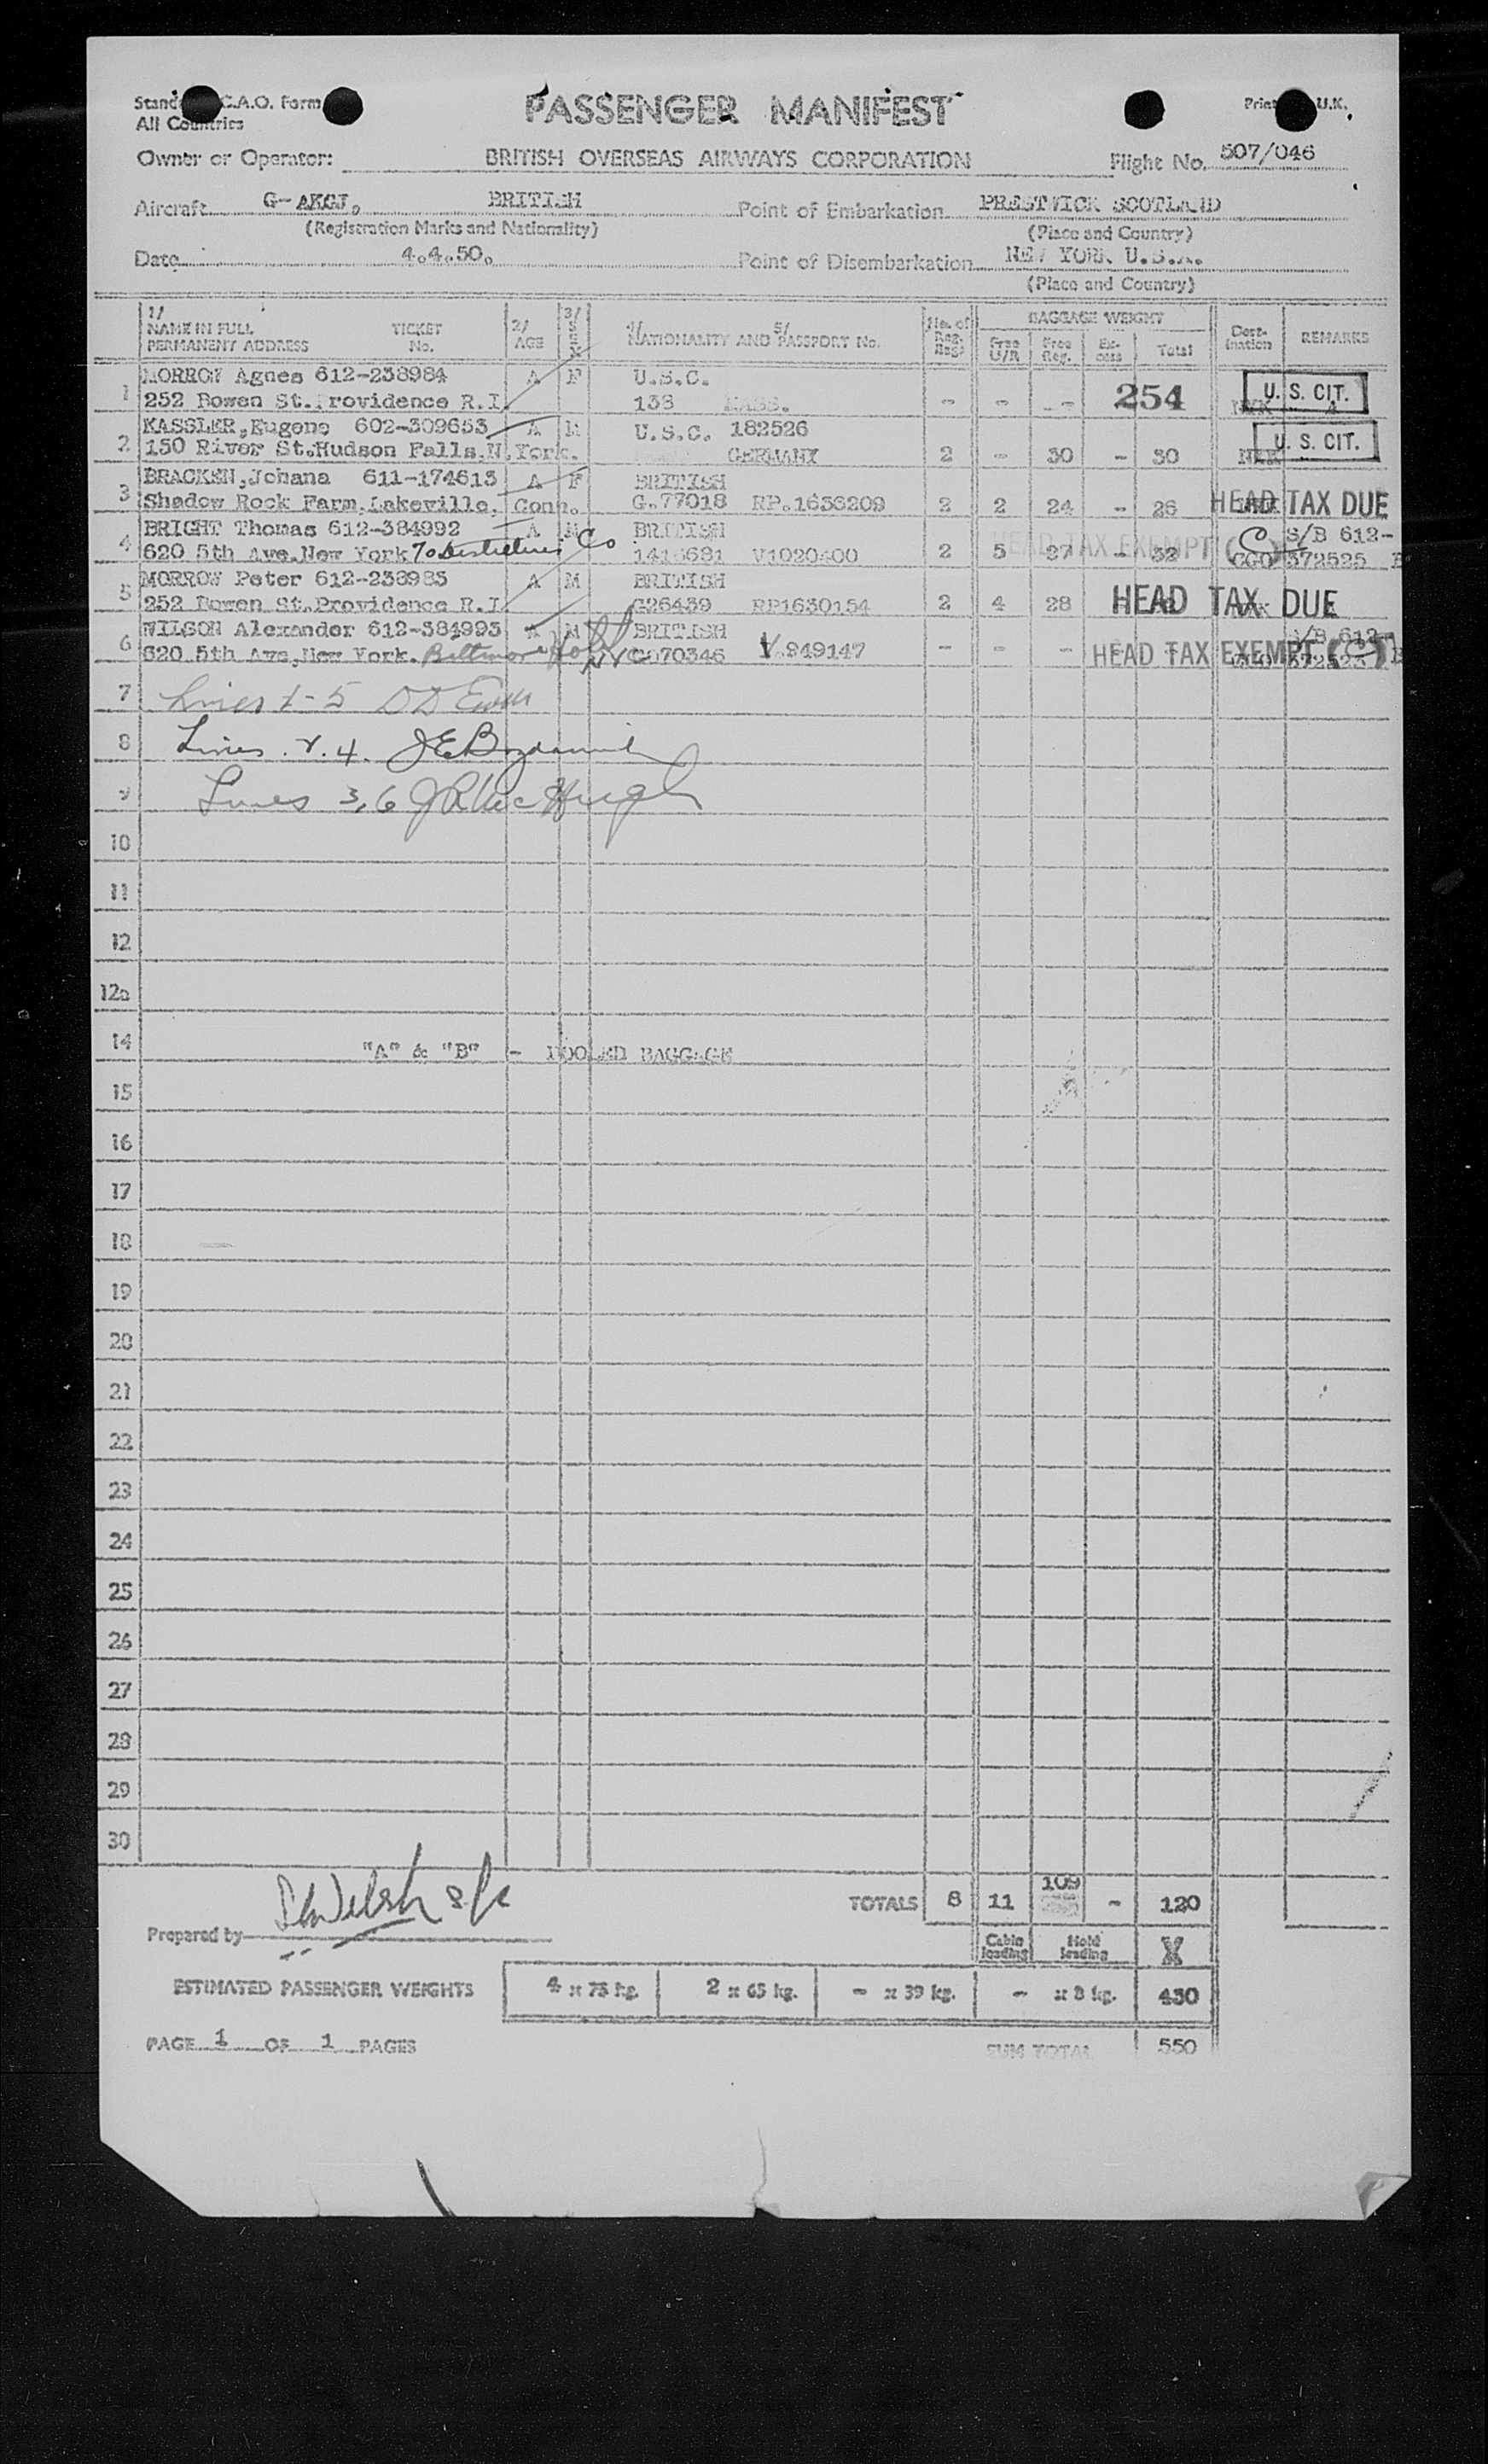 PASSENGER MANIFEST
C.A.O. Form
U.K.
All Countries
Owner or Operator: BRITISH OVERSEAS AIRWAYS CORPORATION Flight No. 507/046
Aircraft G-AKGJ. BRITISH Point of Embarkation PRESTWICK SCOTLAND
(Registration Marks and Nationality) (Place and Country)
Date 4.4.50. Point of Disembarkation NEW YORK U.S.A.
(Place and Country)
1/ NAME IN FULL PERMANENT ADDRESS TICKET No. 2/ AGE 3/ SEX 4/ NATIONALITY AND 5/ PASSPORT No. No. of Reg. Bags BAGGAGE WEIGHT Free U/R Free Reg. Ex-cess Total Dest-ination REMARKS
1 MORROW Agnes 612-238984 A F U.S.C. 254 U. S. CIT.
252 Bowen St. Providence R.I. 138 MASS. - - -
2 KASSLER, Eugene 602-309653 A M U.S.C. 182526 U. S. CIT.
150 River St. Hudson Falls. N. York. GERMANY 2 - 30 - 30
3 BRACKEN, Johana 611-174613 A F BRITISH
Shadow Rock Farm, Lakeville, Conn. G.77018 RP.1636209 2 2 24 - 26 HEAD TAX DUE
4 BRIGHT Thomas 612-384992 A M BRITISH S/B 612-
620 5th Ave. New York Co 1416681 V1020400 2 5 27 - 32 HEAD TAX EXEMPT (C) 372525
5 MORROW Peter 612-238983 A M BRITISH
252 Bowen St. Providence R.I. G26439 RP1630154 2 4 28 HEAD TAX DUE
6 WILSON Alexander 612-384993 A M BRITISH S/B 612-
620 5th Ave, New York. Biltmore Hotel NYC C.070346 V.949147 - - - HEAD TAX EXEMPT (C)
7 Lines 1-5
8 Lines 2.4.
9 Lines 3,6 McHugh
10
11
12
12a
14 "A" & "B" - POOLED BAGGAGE
15
16
17
18
19
20
21
22
23
24
25
26
27
28
29
30
TOTALS 8 11 109 - 120
Prepared by
Cabin loading Hold loading X
ESTIMATED PASSENGER WEIGHTS 4 x 75 kg. 2 x 65 kg. - x 39 kg. - x 8 kg. 430
PAGE 1 OF 1 PAGES SUM TOTAL 550